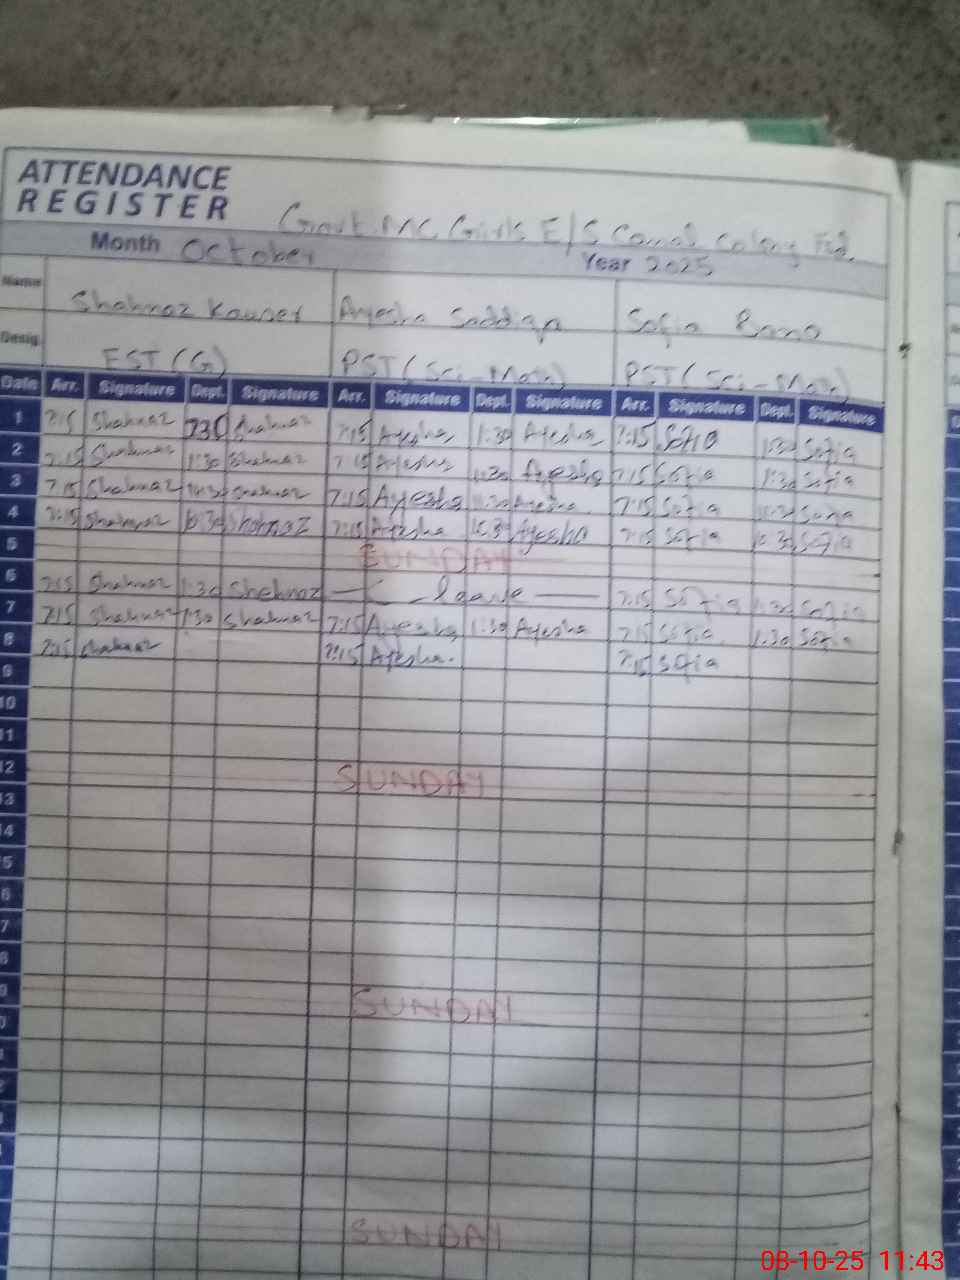 ATTENDANCE
REGISTER
Govt. MC Girls E/S Canal Colony Fsd.
Month October Year 2025
Name Shahnaz Kauser Ayesha Saddiqa Sofia Bano
Desig. EST (G) PST (Sci-Math) PST (Sci-Math)
Date Arr. Signature Dept. Signature Arr. Signature Dept. Signature Arr. Signature Dept. Signature
1 7:15 Shahnaz 730 Shahnaz 7:15 Ayesha 1:30 Ayesha 7:15 Sofia 1:30 Sofia
2 7:15 Shahnaz 1:30 Shahnaz 7:15 Ayesha 1:30 Ayesha 7:15 Sofia 1:30 Sofia
3 7:15 Shahnaz Shahnaz 7:15 Ayesha Ayesha 7:15 Sofia Sofia
4 7:15 Shahnaz 10:30 Shahnaz 7:15 Ayesha 10:30 Ayesha 7:15 Sofia 10:30 Sofia
5 SUNDAY
6 7:15 Shahnaz 1:30 Shahnaz Leave 7:15 Sofia 1:30 Sofia
7 7:15 Shahnaz 1:30 Shahnaz 7:15 Ayesha 1:30 Ayesha 7:15 Sofia 1:30 Sofia
8 7:15 Shahnaz 7:15 Ayesha. 7:15 Sofia
9
10
11
12 SUNDAY
13
14
15
16
17
18
19 SUNDAY
SUNDAY
08-10-25 11:43